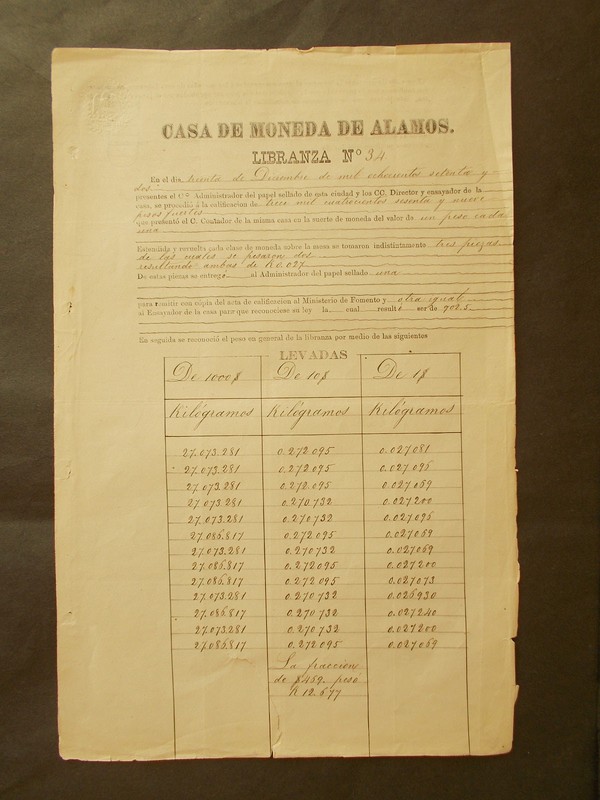 CASA DE MONEDA DE ALAMOS.
LIBRANZA Nº 34
En el dia, treinta de Diciembre de mil ochocientos setenta y
dos
presentes el Cº Administrador del papel sellado de esta ciudad y los CC. Director y ensayador de la
casa, se procedió á la calificacion de trece mil cuatrocientos sesenta y nueve
pesos fuertes
que presentó el C. Contador de la misma casa en la suerte de moneda del valor de un peso cada
una
Estendida y revuelta cada clase de moneda sobre la mesa se tomaron indistintamente tres piezas
de las cuales se pesaron dos
resultando ambas de K0.027
De estas piezas se entregó al Administrador del papel sellado una
para remitir con cópia del acta de calificacion al Ministerio de Fomento y otra igual
al Ensayador de la casa para que reconociese su ley la cual resultó ser de 902.5
En seguida se reconoció el peso en general de la libranza por medio de las siguientes
LEVADAS
De 1000$ De 10$ De 1$
Kilógramos Kilógramos Kilógramos
27.073.281 0.272095 0.027081
27.073.281 0.272095 0.027095
27.073.281 0.272095 0.027069
27.073.281 0.270732 0.027200
27.073.281 0.270732 0.027095
27.086.817 0.272095 0.027069
27.073.281 0.270732 0.027069
27.086.817 0.272095 0.027200
27.086.817 0.272095 0.027073
27.073.281 0.270732 0.026930
27.086.817 0.270732 0.027240
27.073.281 0.270732 0.027200
27.086.817 0.272095 0.027069
La fraccion
de $469. pesó
K 12.677